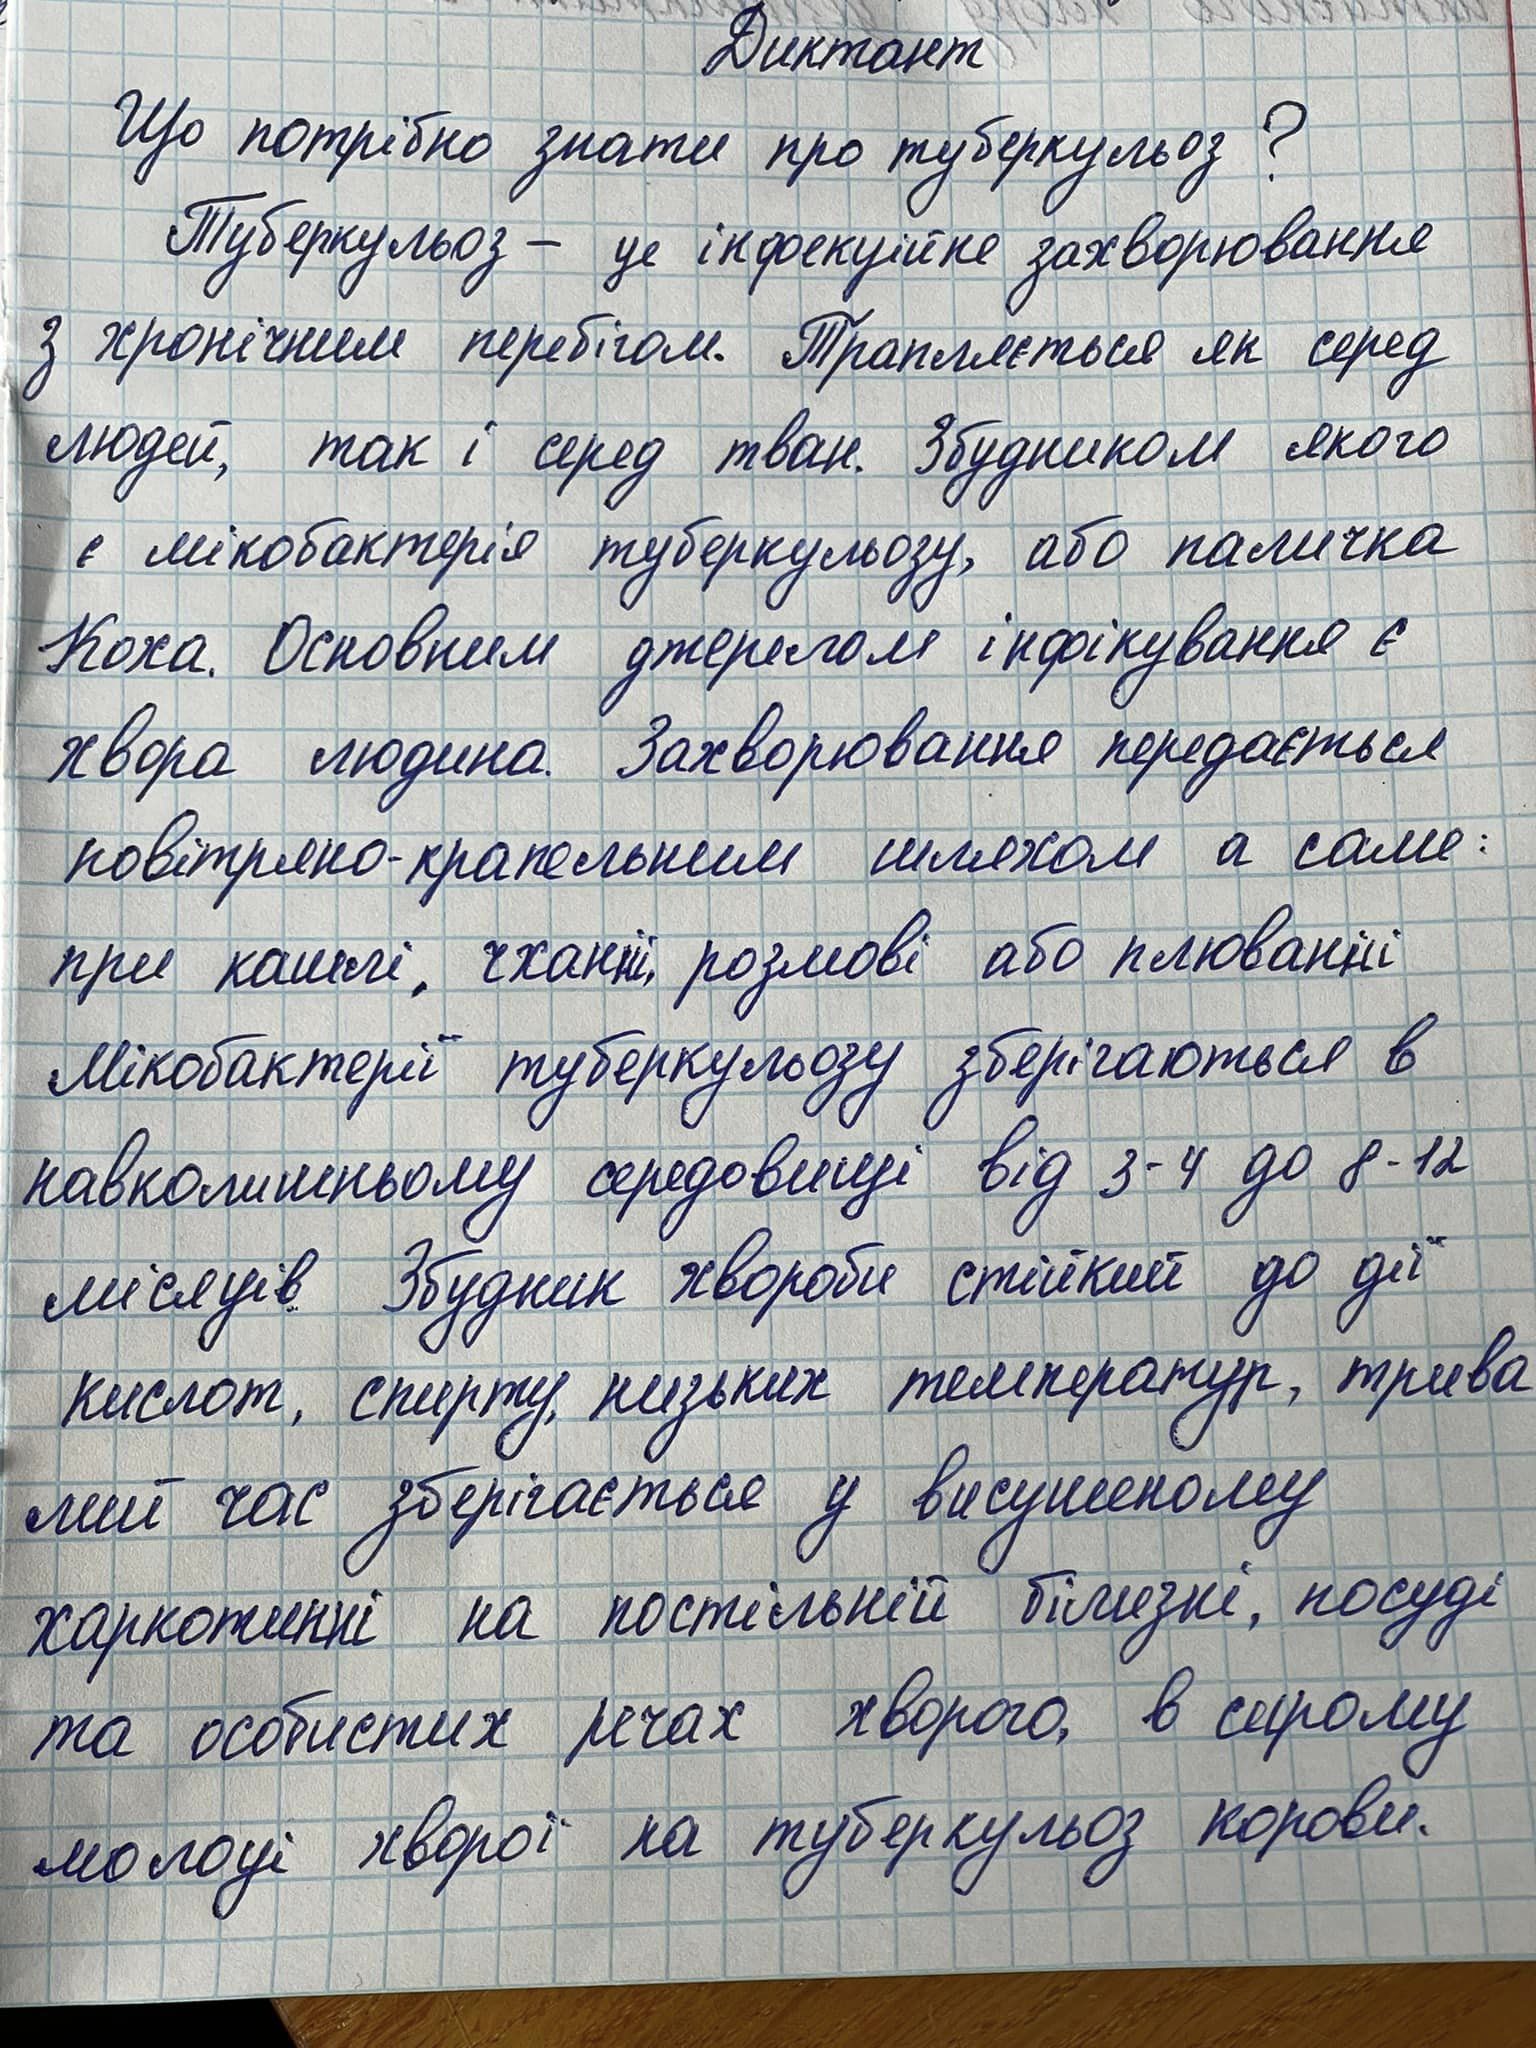 Диктант
Що потрібно знати про туберкульоз?
Туберкульоз – це інфекційне захворювання
з хронічним перебігом. Трапляється як серед
людей, так і серед тван. Збудником якого
є мікобактерія туберкульозу, або паличка
Коха. Основним джерелом інфікування є
хвора людина. Захворювання передається
повітряно-крапельним шляхом а саме:
при кашлі, чханні, розмові або плюванні
Мікобактерії туберкульозу зберігаються в
навколишньому середовищі від 3-4 до 8-12
місяців. Збудник хвороби стійкий до дії
кислот, спирту, низьких температур, трива
лий час зберігається у висушеному
харкотинні на постільній білизні, посуді
та особистих речах хворого, в сирому
молоці хворої на туберкульоз корови.